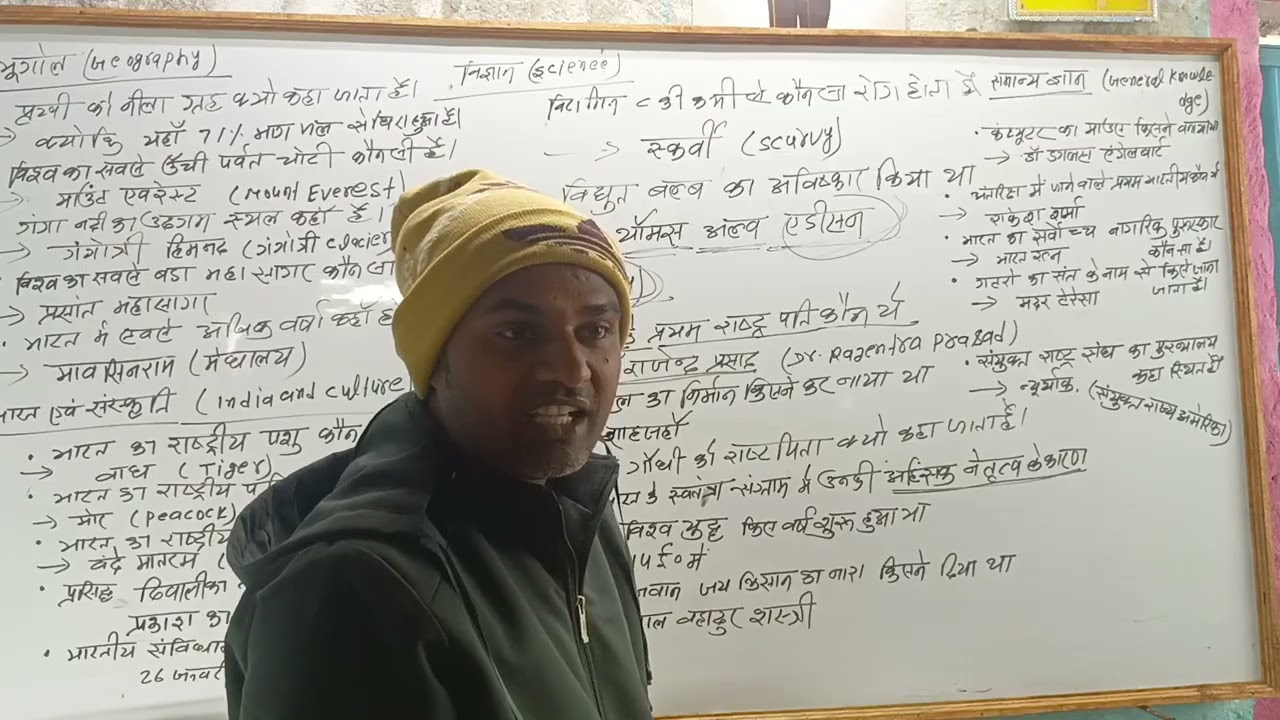 भूगोल (Geography)
पृथ्वी को नीला ग्रह क्यो कहा जाता है।
→ क्योकि यहाँ 71% भाग जल से घिरा हुआ है।
विश्व का सबसे ऊँची पर्वत चोटी कौन सी है।
→ माउंट एवरेस्ट (Mount Everest)
गंगा नदी का उद्गम स्थल कहाँ है।
→ गंगोत्री हिमनद (गंगोत्री Glacier
• विश्व का सबसे बडा महासागर कौन सा
→ प्रसांत महासागर
• भारत में सबसे अधिक वर्षा कहाँ हो
→ मावसिनराम (मेघालय)
भारत एवं संस्कृति (India and culture)
• भारत का राष्ट्रीय पशु कौन
→ बाघ (Tiger)
• भारत का राष्ट्रीय
→ मोर (Peacock)
• भारत का राष्ट्रीय
→ वंदे मातरम (
• प्रसिद्ध दिवाली का
प्रकाश का
• भारतीय संविधान
26 जनवरी
विज्ञान (Science)
विटामिन C की कमी से कौन सा रोग होता है
→ स्कर्वी (Scurvy)
विद्युत बल्ब का अविष्कार किया था
थॉमस अल्व एडीसन
प्रथम राष्ट्रपति कौन थे
राजेन्द्र प्रसाद (Dr. Ragentra Prasad)
ल का निर्मान किसने करवाया था
शाहजहाँ
गाँधी को राष्टपिता क्यो कहा जाता है।
के स्वतंत्रा संग्राम में उनकी अहिंसक नेतृत्व के कारण
विश्व युद्ध किस वर्ष शुरू हुआ था
ई० में
जवान जय किसान का नारा किसने दिया था
लाल बहादुर शास्त्री
सामान्य ज्ञान (General Knowle-
dge)
• कंप्यूटर का माउस किसने बनाया था
→ डॉ डगलस एंगेलबार्ट
• अंतरिक्ष में जाने वाले प्रथम भारतीय कौन थे
→ राकेश शर्मा
• भारत का सर्वोच्च नागरिक पुरस्कार
कौन सा है।
→ भारत रत्न
• गटरो का संत के नाम से किसे जाना
जाता है।
→ मदर टेरेसा
• संयुक्त राष्ट्र संघ का मुख्यालय
कहा स्थित है
→ न्यूयॉर्क. (संयुक्त राष्य अमेरिका)